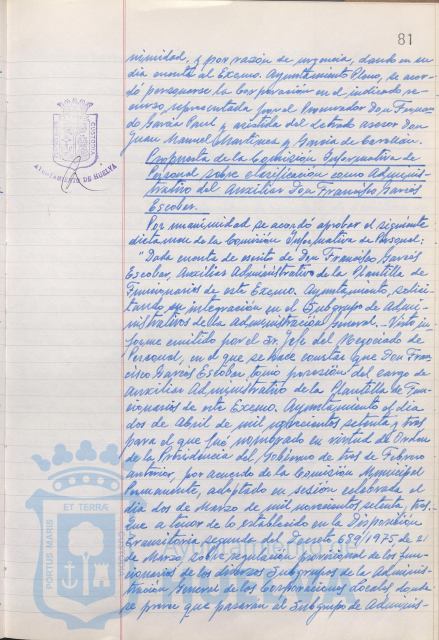 81
nimidad, y por razón de urgencia, dando en su
día cuenta al Excmo. Ayuntamiento Pleno, se acor-
dó personarse la Corporación en el indicado re-
curso, representada por el Procurador Don Fernan-
do García Paul y asistida del Letrado asesor Don
Juan Manuel Martínez y García de
Propuesta de la Comisión Informativa de
Personal sobre clasificación como Adminis-
trativo del Auxiliar Don Francisco Garcés
Escobar.
Por unanimidad se acordó aprobar el siguiente
dictamen de la Comisión Informativa de Personal:
"Dada cuenta de escrito de Don Francisco Garcés
Escobar, Auxiliar Administrativo de la Plantilla de
Funcionarios de este Excmo. Ayuntamiento, solici-
tando su integración en el Subgrupo de Admi-
nistrativos de la Administración General.- Visto in-
forme emitido por el Sr. Jefe del Negociado de
Personal, en el que se hace constar que Don Fran-
cisco Garcés Escobar, tomó posesión del cargo de
Auxiliar Administrativo de la Plantilla de Fun-
cionarios de este Excmo. Ayuntamiento el día
dos de Abril de mil novecientos setenta y tres,
para el que fué nombrado en virtud de Orden
de la Presidencia del Gobierno de tres de Febrero
anterior, por acuerdo de la Comisión Municipal
Permanente, adoptado en sesión celebrada el
día dos de Marzo de mil novecientos setenta y tres.-
Que a tenor de lo establecido en la Disposición
Transitoria segunda del Decreto 689/1975 de 21
de Marzo sobre regulación provisional de los fun-
cionarios de los diversos Subgrupos de la Adminis-
tración General de las Corporaciones Locales, donde
se prevé que pasarán al Subgrupo de Adminis-
AYUNTAMIENTO DE HUELVA
PORTUS MARIS
ET TERRÆ
CUSTODIA